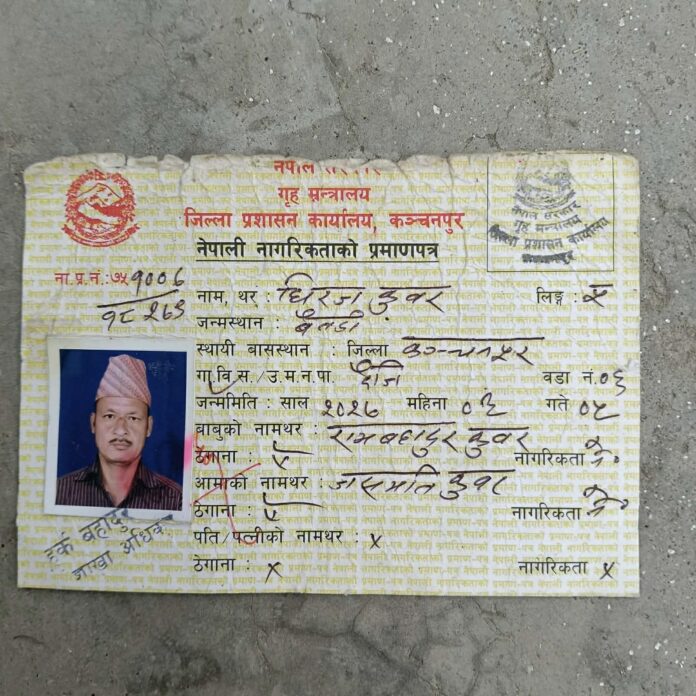 नेपाल सरकार
गृह मन्त्रालय
जिल्ला प्रशासन कार्यालय, कञ्चनपुर
नेपाली नागरिकताको प्रमाणपत्र
नेपाल सरकार
गृह मन्त्रालय
जिल्ला प्रशासन कार्यालय
कञ्चनपुर
ना.प्र.नं.:७५१००६
१८२६३
नाम, थर : धिरज कुवर लिङ्ग :
जन्मस्थान : बैतडी
स्थायी बासस्थान : जिल्ला कञ्चनपुर
गा.वि.स./उ.म.न.पा. दैजि वडा नं.०६
जन्ममिति : साल २०२६ महिना ०६ गते ०५
बाबुको नामथर : रामबहादुर कुवर
ठेगाना : नागरिकता
आमाको नामथर : जसमति कुवर
ठेगाना : नागरिकता
पति/पत्नीको नामथर : x
ठेगाना : x नागरिकता x
हर्क बहादुर
शाखा अधिकृत